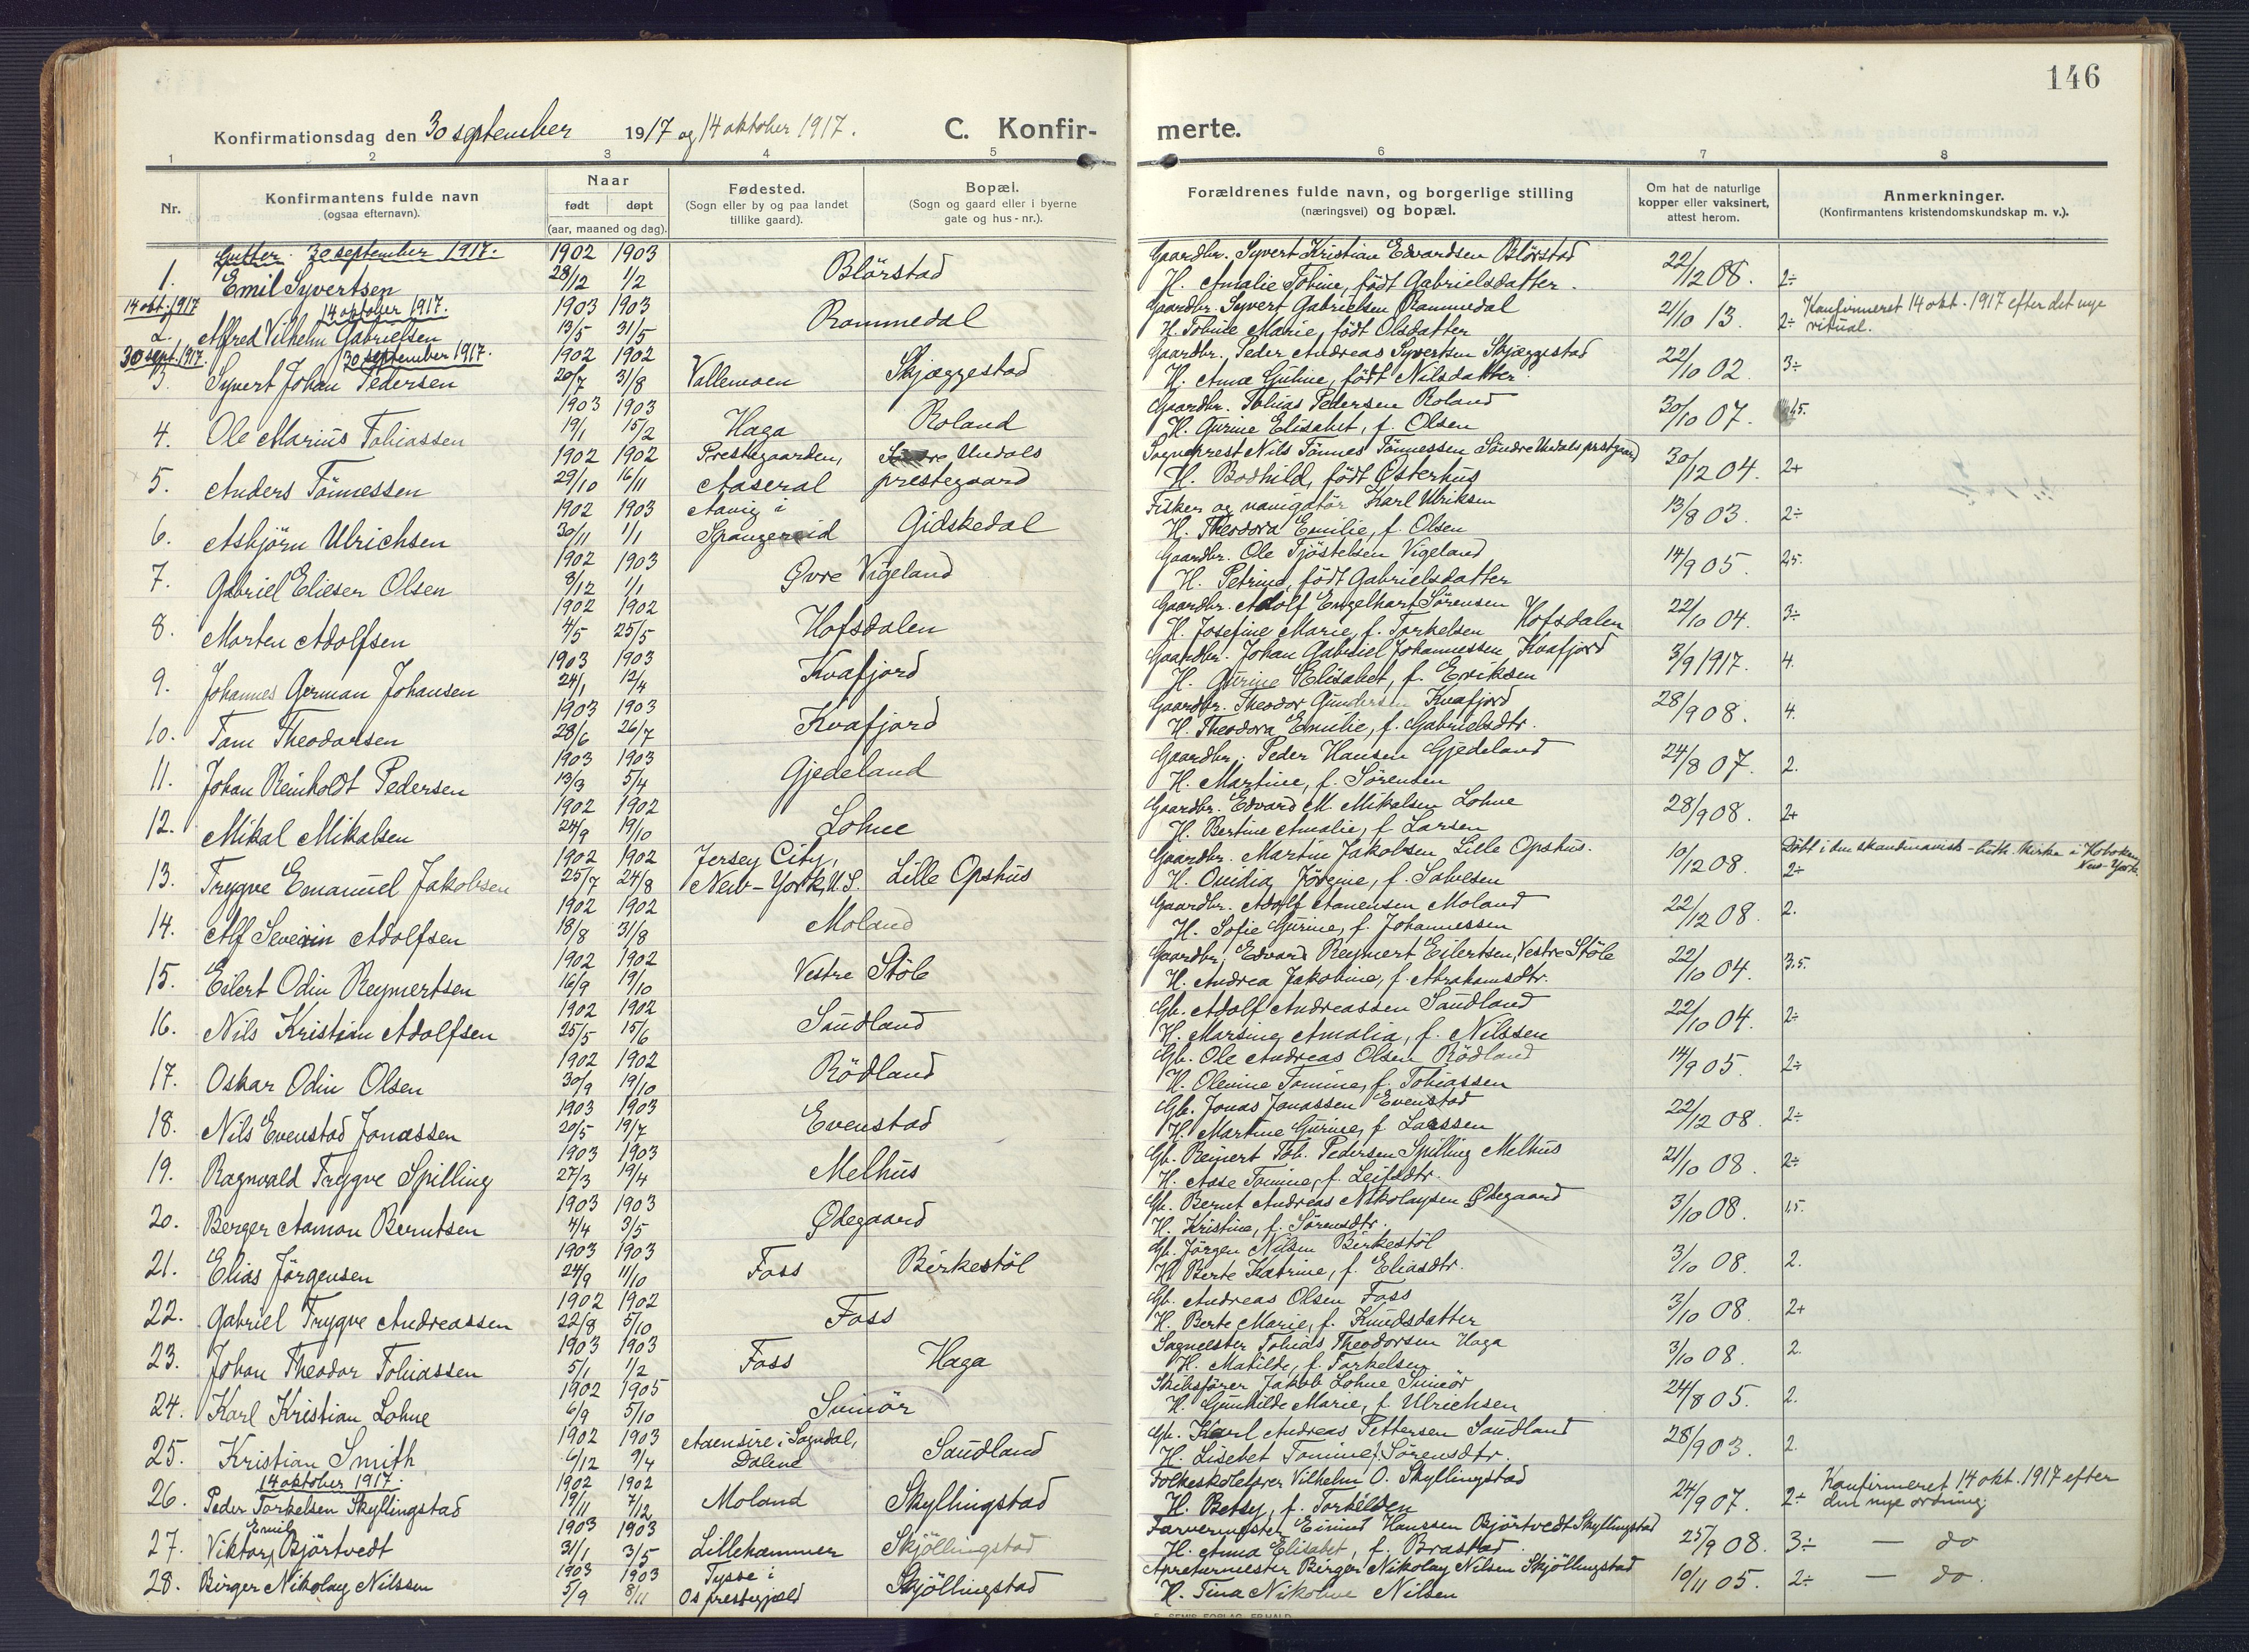 146
Konfirmationsdag den 30 september 1917 og 14 oktober 1917. C. Konfir- merte.
1 2 3 4 5 6 7 8
Nr. Konfirmantens fulde navn (ogsaa efternavn). Naar født døpt (aar, maaned og dag). Fødested. (Sogn eller by og paa landet tillike gaard). Bopæl. (Sogn og gaard eller i byerne gate og hus-nr.). Forældrenes fulde navn, og borgerlige stilling (næringsvei) og bopæl. Om hat de naturlige kopper eller vaksinert, attest herom. Anmerkninger. (Konfirmantens kristendomskundskap m. v.).
Gutter. 30 september 1917.
1. Emil Syvertsen 1902 28/12 1903 1/2 Blörstad Gaardbr. Syvert Kristian Edvardsen Blörstad
H. Amalie Tobine, födt Gabrielsdatter. 22/12 08. 2÷
14 okt. 1917 14 oktober 1917.
2. Alfred Vilhelm Gabrielsen 1903 13/5 1903 31/5 Rommedal Gaardbr. Syvert Gabrielsen Rommedal
H. Tobine Marie, födt Olsdatter 21/10 13. 2÷ Konfirmeret 14 okt. 1917 efter det nye ritual.
30 sept. 1917. 30 september 1917.
3. Syvert Johan Pedersen 1902 20/7 1902 31/8 Vallemoen Skjæggestad Gaardbr. Peder Andreas Syvertsen Skjæggestad
H. Anna Guline, födt Nilsdatter. 22/10 02. 3÷
4. Ole Marius Tobiassen 1903 19/1 1903 15/2 Haga Roland Gaardbr. Tobias Pedersen Roland
H. Gurine Elisabet, f. Olsen 30/10 07.
5. Anders Tönnessen 1902 29/10 1902 16/11 Prestegaarden, Aaseral Söndre Undals prestegaard Sogneprest Nils Tönnes Tönnessen Söndre Undals prstgaard
H. Bodhild, födt Østerhus 30/12 04. 2+
6. Asbjörn Ulrichsen 1902 30/11 1903 1/1 Aavig i Spangereid Gidskedal Fisker og navigatör Karl Ulriksen
H. Theodora Emilie, f. Olsen 13/8 03. 2÷
7. Gabriel Elieser Olsen 1902 8/12 1903 1/1 Øvre Vigeland Gaardbr. Ole Tjöstelsen Vigeland
H. Petrine, födt Gabrielsdatter 14/9 05. 2,5.
8. Morten Adolfsen 1902 4/5 1902 25/5 Hofsdalen Gaardbr. Adolf Engelhart Sörensen Hofsdalen
H. Josefine Marie, f. Torkelsen 22/10 04. 3÷
9. Johannes German Johansen 1903 24/1 1903 12/4 Kvafjord Gaardbr. Johan Gabriel Johannessen Kvafjord
H. Gurine Elisabet, f. Eriksen 3/9 1917. 4.
10. Tom Theodorsen 1903 28/6 1903 26/7 Kvafjord Gaardbr. Theodor Gundersen Kvafjord
H. Theodora Emilie, f. Gabrielsdtr. 28/9 08. 4.
11. Johan Reinholdt Pedersen 1903 13/3 1903 5/4 Gjedeland Gaardbr. Peder Hansen Gjedeland
H. Martine, f. Sörensen 24/8 07. 2.
12. Mikal Mikalsen 1902 24/9 1902 19/10 Lohne Gaardbr. Edvard M. Mikalsen Lohne
H. Bertine Amalie, f. Larsen 28/9 08. 2+
13. Trygve Emanuel Jakobsen 1902 25/7 1902 24/8 Jersey City, New-York, U.S. Lille Opshus Gaardbr. Martin Jakobsen Lille Opshus.
H. Ovidia Jörgine, f. Salvesen 10/12 08. 2÷ Döbt i den skandinavisk-luth. kirke i Hoboken New-York.
14. Alf Severin Adolfsen 1902 18/8 1902 31/8 Moland Gaardbr. Adolf Aanensen Moland
H. Sofie Gurine, f. Johannessen 22/12 08. 2.
15. Eilert Odin Reymertsen 1902 16/9 1902 19/10 Vestre Stöle Gaardbr. Edvard Reymert Eilertsen, Vestre Stöle
H. Andrea Jakobine, f. Abrahamsdtr. 22/10 04. 3,5.
16. Nils Kristian Adolfsen 1902 25/5 1902 15/6 Saudland Gb. Adolf Andreassen Saudland
H. Marsine Amalia, f. Nilssen 22/10 04. 2÷
17. Oskar Odin Olsen 1902 30/9 1902 19/10 Rödland Gb. Ole Andreas Olsen Rödland
H. Olevine Tomine, f. Tobiassen 14/9 05. 2÷
18. Nils Evenstad Jonassen 1903 20/5 1903 19/7 Evenstad Gb. Jonas Jonassen Evenstad
H. Martine Gurine, f. Larssen 22/12 08. 2÷
19. Ragnvald Trygve Spilling 1903 27/3 1903 19/4 Melhus Gb. Reinert Tob. Pedersen Spilling Melhus
H. Aase Tomine, f. Leifsdtr. 21/10 08. 2÷
20. Berger Aamon Berntsen 1903 4/4 1903 3/5 Ødegaard Gb. Bernt Andreas Nikolaysen Ødegaard
H. Kristine, f. Sörensdtr. 3/10 08. 1,5.
21. Elias Jörgensen 1903 24/9 1903 11/10 Foss Birkestöl Gb. Jörgen Nilsen Birkestöl
H. Berte Katrine, f. Eliasdtr. 3/10 08. 2.
22. Gabriel Trygve Andreassen 1902 22/8 1902 5/10 Foss Gb. Andreas Olsen Foss
H. Berte Marie, f. Knudsdatter 3/10 08. 2+
23. Johan Theodor Tobiassen 1903 5/1 1903 1/2 Foss Haga Tobias Theodorsen Haga
H. Matilde, f. Torkelsen 3/10 08. 2.
24. Karl Kristian Lohne 1902 6/9 1905 5/10 Svinör Skibsförer Jakob Lohne Svinör
H. Gunhilde Marie, f. Ulrichsen 24/8 05. 2.
25. Kristian Smith 1902 6/12 1903 9/4 Aaensire i Sogndal, Dalene Saudland Gb. Karl Andreas Pettersen Saudland
H. Lisebet Tomine, f. Sörensdtr. 28/9 03. 2.
14 oktober 1917.
26. Peder Torkelsen Skyllingstad 1902 19/11 1902 7/12 Moland Skyllingstad Folkeskolelærer Vilhelm O. Skyllingstad
H. Betsy, f. Torkildsen 24/9 07. 2÷ Konfirmeret 14 okt. 1917 efter den nye ordning.
27. Viktor Emil Björtvedt 1903 31/1 1903 3/5 Lillehammer Skjöllingstad Farvermester Einind Hanssen Björtvedt Skyllingstad
H. Anna Elisabet, f. Brastad. 25/9 08. 3÷ — do
28. Birger Nikolay Nilssen 1903 5/9 1903 8/11 Tysse i Os prestegjæld Skjöllingstad Apreturmester Birger Nikolay Nilsen Skjöllingstad
H. Tina Nikoline Nilsen 10/11 05. 2÷ — do.